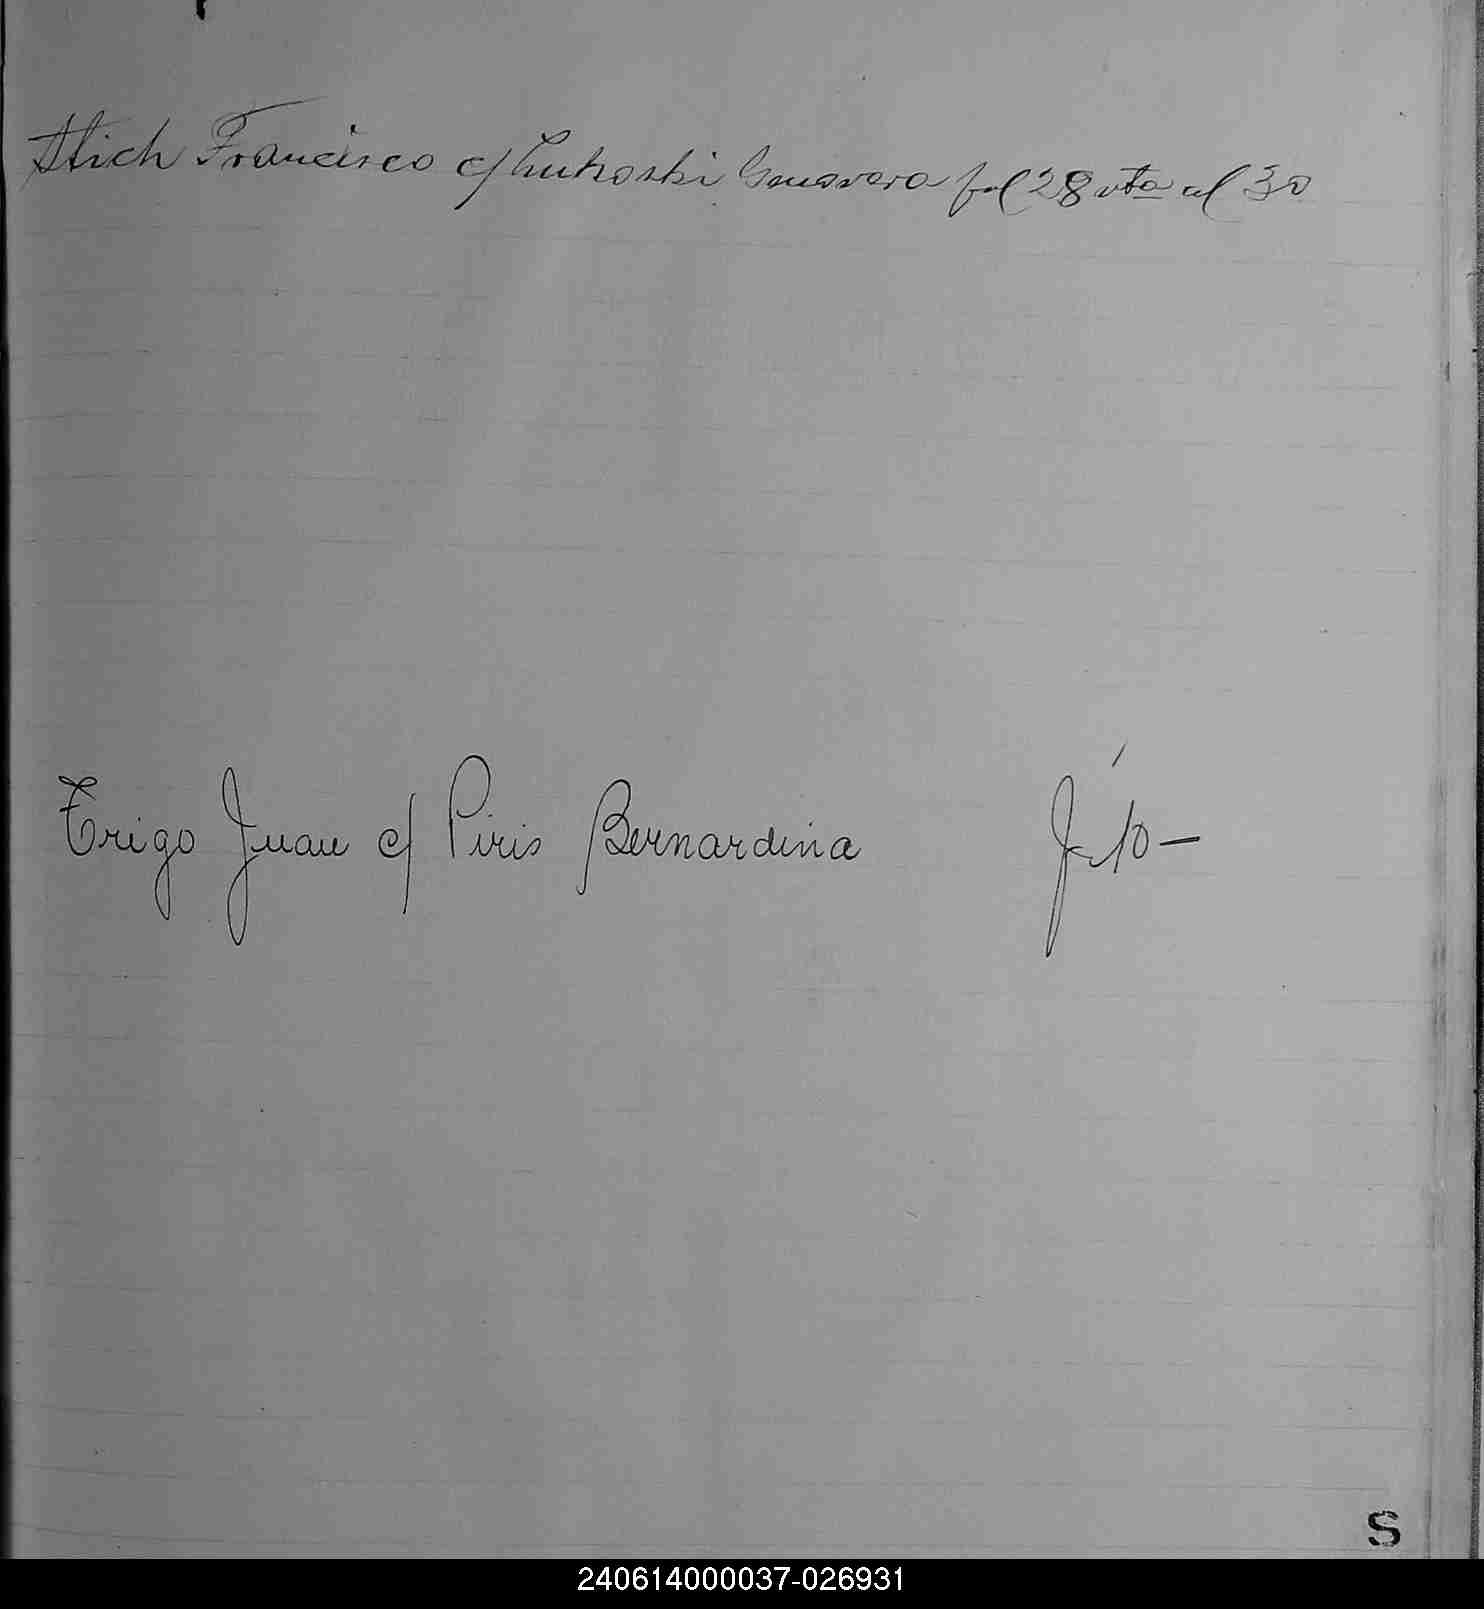 Francisco c/ Lukoski Genovera fol 28 vta al 30
Trigo Juan c/ Piris Bernardina
S
240614000037-026931